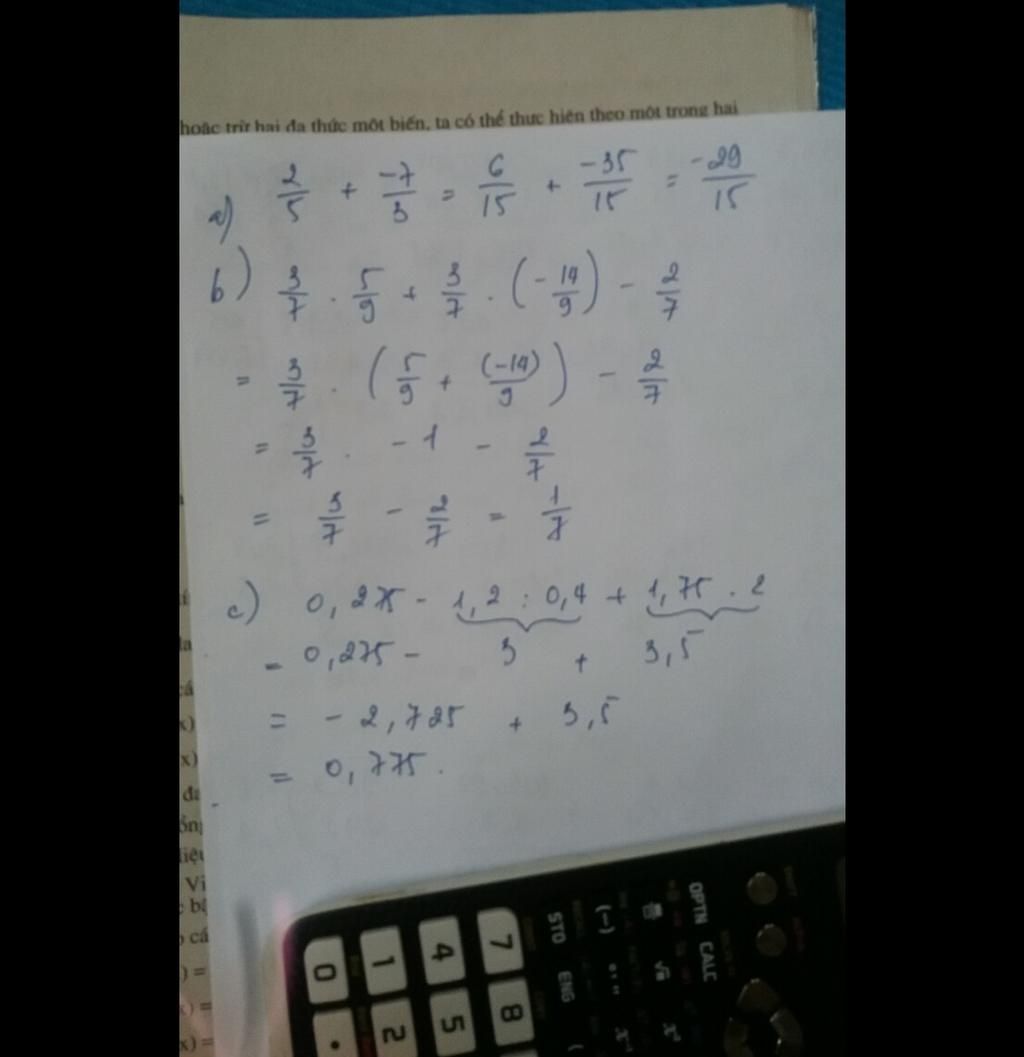 hoặc trừ hai đa thức một biến, ta có thể thực hiện theo một trong hai
a) 2/5 + -7/3 = 6/15 + -35/15 = -29/15
b) 3/7 . 5/9 + 3/7 . (-14/9) - 2/7
= 3/7 . (5/9 + (-14)/9) - 2/7
= 3/7 . -1 - 2/7
= 3/7 - 2/7 = 1/7
c) 0,275 - 1,2 : 0,4 + 1,75 . 2
= 0,275 - 3 + 3,5
= -2,725 + 3,5
= 0,775.
x)
x)
đa
Vi
cá
) =
x) =
x) =
OPTN CALC
(−)
STO ENG
7 8
4 5
1 2
0 .